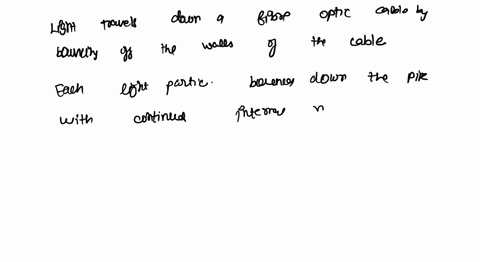 Light travels down a fibre optic cable by
bouncing off the walls of the cable
Each light partic. bounces down the pipe
with continued internal r